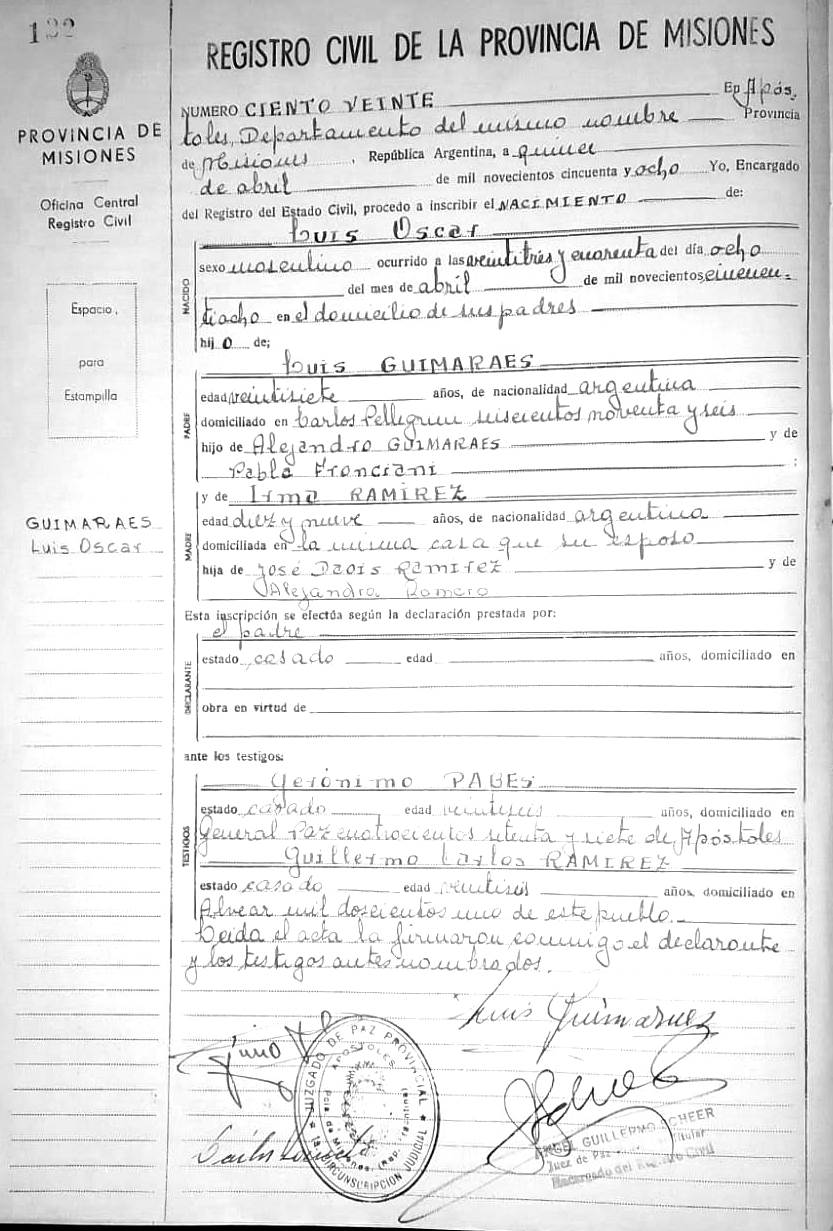 122
REGISTRO CIVIL DE LA PROVINCIA DE MISIONES
PROVINCIA DE
MISIONES
Oficina Central
Registro Civil
Espacio
para
Estampilla
GUIMARAES
Luis Oscar
NUMERO CIENTO VEINTE En Após-
toles, Departamento del mismo nombre Provincia
de Misiones, República Argentina, a quince
de abril de mil novecientos cincuenta y ocho Yo, Encargado
del Registro del Estado Civil, procedo a inscribir el NACIMIENTO de:
NACIDO
Luis Oscar
sexo masculino ocurrido a las veintitres y cuarenta del día ocho
del mes de abril de mil novecientos cincuen-
tiocho en el domicilio de sus padres
hijo de;
PADRE
Luis GUIMARAES
edad veintisiete años, de nacionalidad argentina
domiciliado en Carlos Pellegrini seiscientos noventa y seis
hijo de Alejandro GUIMARAES y de
Pabla Franciani ;
MADRE
y de Irma RAMIREZ
edad diez y nueve años, de nacionalidad argentina
domiciliada en la misma casa que su esposo
hija de José Ramirez y de
Alejandra Romero
Esta inscripción se efectúa según la declaración prestada por:
el padre
DECLARANTE
estado casado edad años, domiciliado en
obra en virtud de
ante los testigos:
TESTIGOS
Gerónimo PABES
estado casado edad veintiseis años, domiciliado en
General Paz cuatrocientos setenta y siete de Apóstoles
Guillermo Carlos RAMIREZ
estado casado edad veintiseis años, domiciliado en
Alvear mil doscientos uno de este pueblo.
Leida el acta la firmaron conmigo el declarante
y los testigos antes nombrados.
Luis Guimaraes
JUZGADO DE PAZ PROVINCIAL
APOSTOLES
Pcia. de Misiones (Rep. Argentina)
1a. CIRCUNSCRIPCION JUDICIAL
ANGEL GUILLERMO SCHEER
Juez de Paz Titular
Encargado del Registro Civil